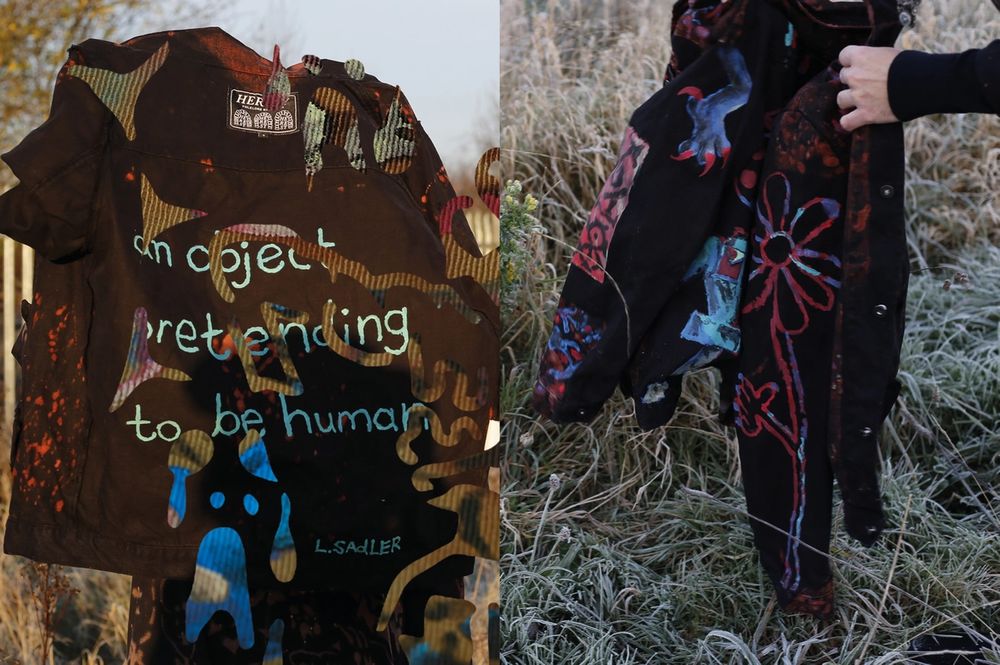 HER
an object
pretending
to be human
L.SADLER